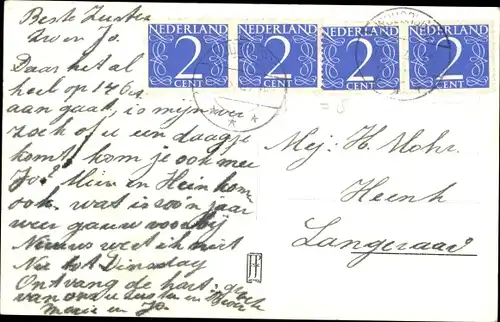 Beste Zusters
Zwen Jo.
Daar het al
heel op 17 Oct.
aan gaat, is mijn ver
zoek of u een daagje
komt, kom je ook mee
Jo? Mien en Hein kom
ook. wat is zo'n jaar
weer gauw voorbij
Nieuws weet ik niet
Nu tot Dinsdag
Ontvang de hart. groete
van onze zusters en Broer
marie en Jo.
NEDERLAND NEDERLAND NEDERLAND NEDERLAND
2 2 2 2
CENT CENT CENT CENT
= 8
Mej: H. Mohr.
Heenh
Langeraar